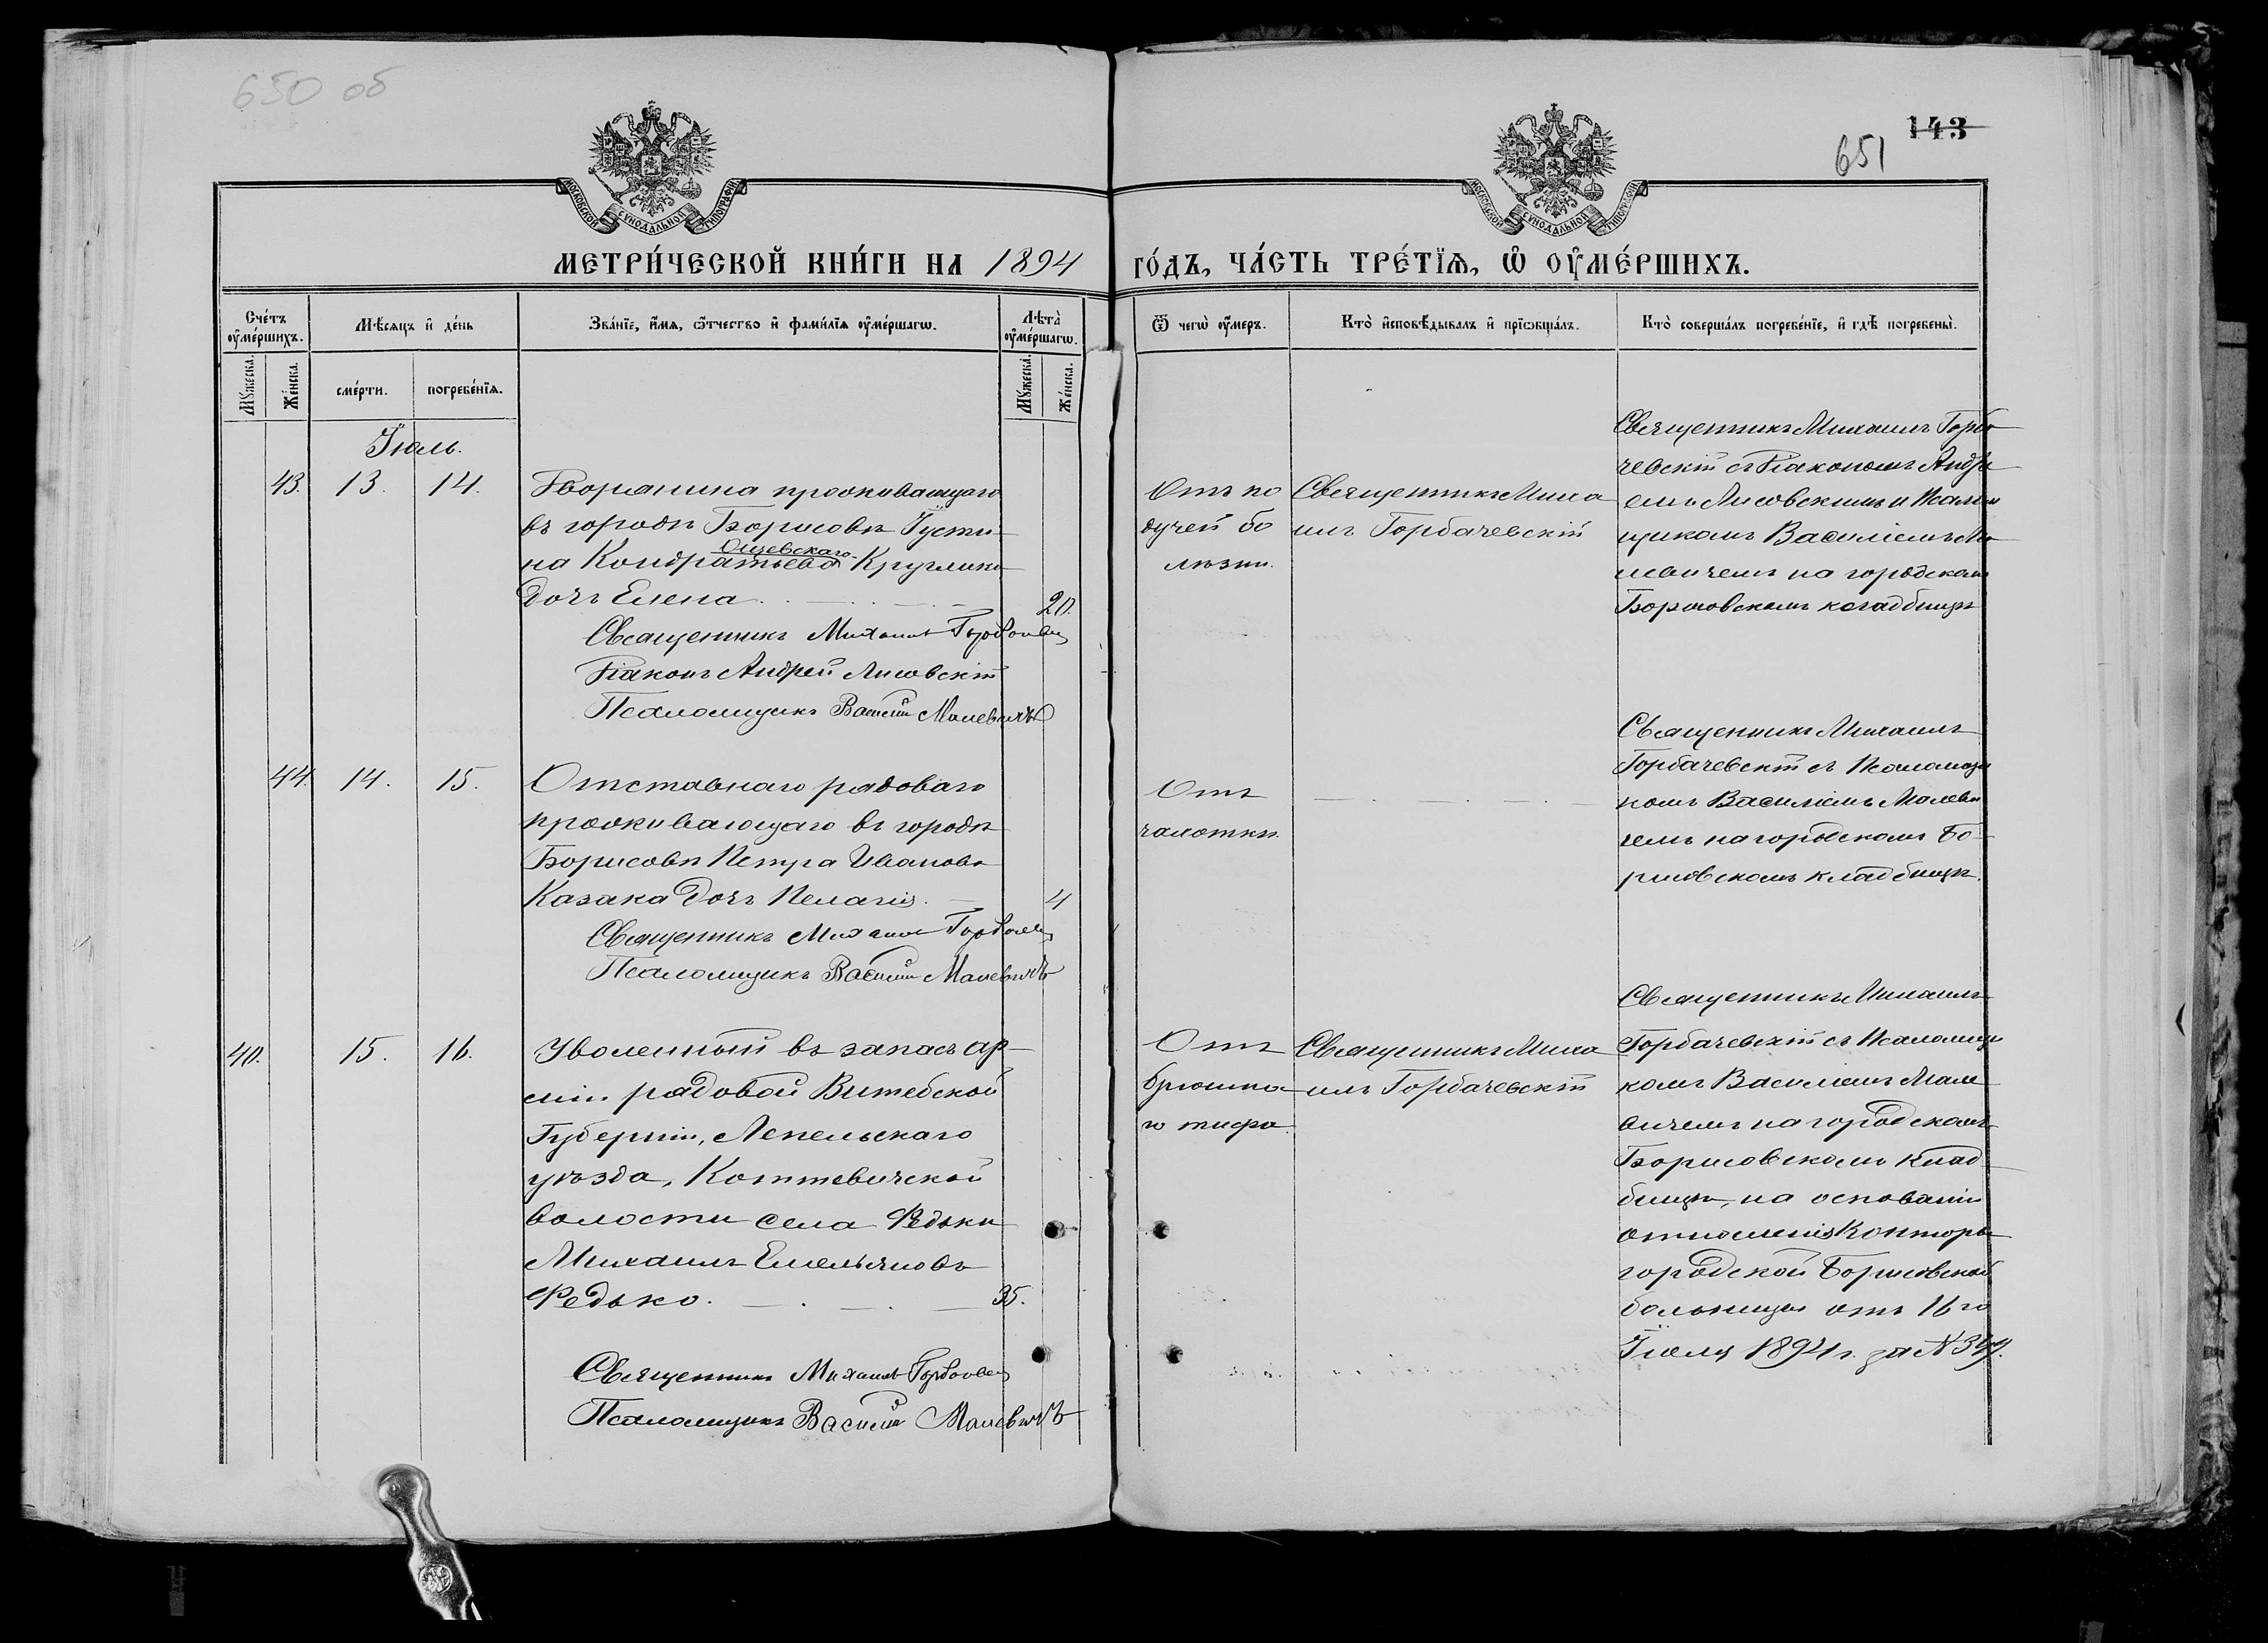 650 об
143
651
МОСКОВСКОЙ СУНОДАЛЬНОЙ ТИПОГРАФІИ
МОСКОВСКОЙ СУНОДАЛЬНОЙ ТИПОГРАФІИ
МЕТРИ́ЧЕСКОЙ КНИ́ГИ НА 1894 ГО́ДЪ, ЧА́СТЬ ТРЕ́ТЇѦ, Ѡ ОУ҆МЕ́РШИХЪ.
Сче́тъ оу҆ме́ршихъ.
Мѣ́сяцъ и҆ де́нь
Зва́нїе, и҆́мѧ, ѻ҆́тчество и҆ фами́лїѧ оу҆ме́ршагѡ.
Лѣ́та оу҆ме́ршагѡ.
Ѿ чегѡ̀ оу҆́меръ.
Кто̀ и҆сповѣ́дывалъ и҆ прїѡбща́лъ.
Кто̀ соверша́лъ погребе́нїе, и҆ гдѣ̀ погребены̀.
Мꙋ́жеска.
Же́нска.
сме́рти.
погребе́нїѧ.
Мꙋ́жеска.
Же́нска.
Іюль.
43. 13. 14.
Дворянина проживающаго
въ городѣ Борисовѣ Іусти-
на Кондратьева Круглико
Ошевскаго
Дочь Елена
20.
Священникъ Михаилъ Горбачевск
Діаконъ Андрей Лисовскій
Псаломщикъ Василій Малевичъ
Отъ па
дучей бо
лѣзни.
Священникъ Миха
илъ Горбачевскій
Священникъ Михаилъ Горба
чевскій съ Діакономъ Андре
емъ Лисовскимъ и Псалом
щикомъ Василіемъ Ма
левичемъ на городскомъ
Борисовскомъ кладбищѣ
44. 14. 15.
Отставнаго рядоваго
проживающаго въ городѣ
Борисовѣ Петра Иванова
Казака Дочь Пелагія.
4
Священникъ Михаилъ Горбачевск
Псаломщикъ Василій Малевичъ
Отъ
чахотки.
Священникъ Михаилъ
Горбачевскій съ Псаломщи
комъ Василіемъ Малеви
чемъ на городскомъ Бо-
рисовскомъ кладбищѣ.
40. 15. 16.
Уволенный въ запасъ ар-
міи рядовой Витебской
Губерніи, Лепельскаго
уѣзда, Коттевичской
волости села Федьки
Михаилъ Емельяновъ
Федько.
35.
Священникъ Михаилъ Горбачевск
Псаломщикъ Василій Малевичъ
Отъ
брюшна
го тифа.
Священникъ Миха
илъ Горбачевскій
Священникъ Михаилъ
Горбачевскій съ Псаломщи
комъ Василіемъ Мале
вичемъ на городскомъ
Борисовскомъ клад
бищѣ, на основаніи
отношенія Конторы
городской Борисовской
больницы отъ 16 го
Іюля 1894 г. за №